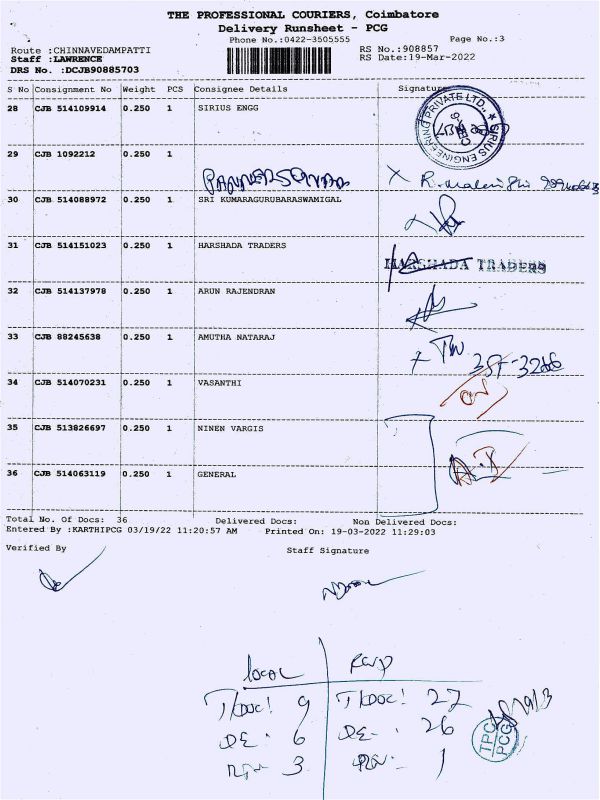 THE PROFESSIONAL COURIERS, Coimbatore
Delivery Runsheet - PCG
Phone No.:0422-3505555
Page No.:3
Route :CHINNAVEDAMPATTI
RS No.:908857
Staff :LAWRENCE
RS Date:19-Mar-2022
DRS No. :DCJB90885703
S No Consignment No Weight PCS Consignee Details Signature
28 CJB 514109914 0.250 1 SIRIUS ENGG
SIRIUS ENGINEERING PRIVATE LTD.,
29 CJB 1092212 0.250 1
30 CJB 514088972 0.250 1 SRI KUMARAGURUBARASWAMIGAL
31 CJB 514151023 0.250 1 HARSHADA TRADERS
HARSHADA TRADERS
32 CJB 514137978 0.250 1 ARUN RAJENDRAN
33 CJB 88245638 0.250 1 AMUTHA NATARAJ
34 CJB 514070231 0.250 1 VASANTHI
35 CJB 513826697 0.250 1 NINEN VARGIS
36 CJB 514063119 0.250 1 GENERAL
Total No. Of Docs: 36 Delivered Docs: Non Delivered Docs:
Entered By :KARTHIPCG 03/19/22 11:20:57 AM Printed On: 19-03-2022 11:29:03
Verified By Staff Signature
local
T/Doc: 9 T/Doc: 27
DE: 6 DE- 26
3 1
TPC
PCG